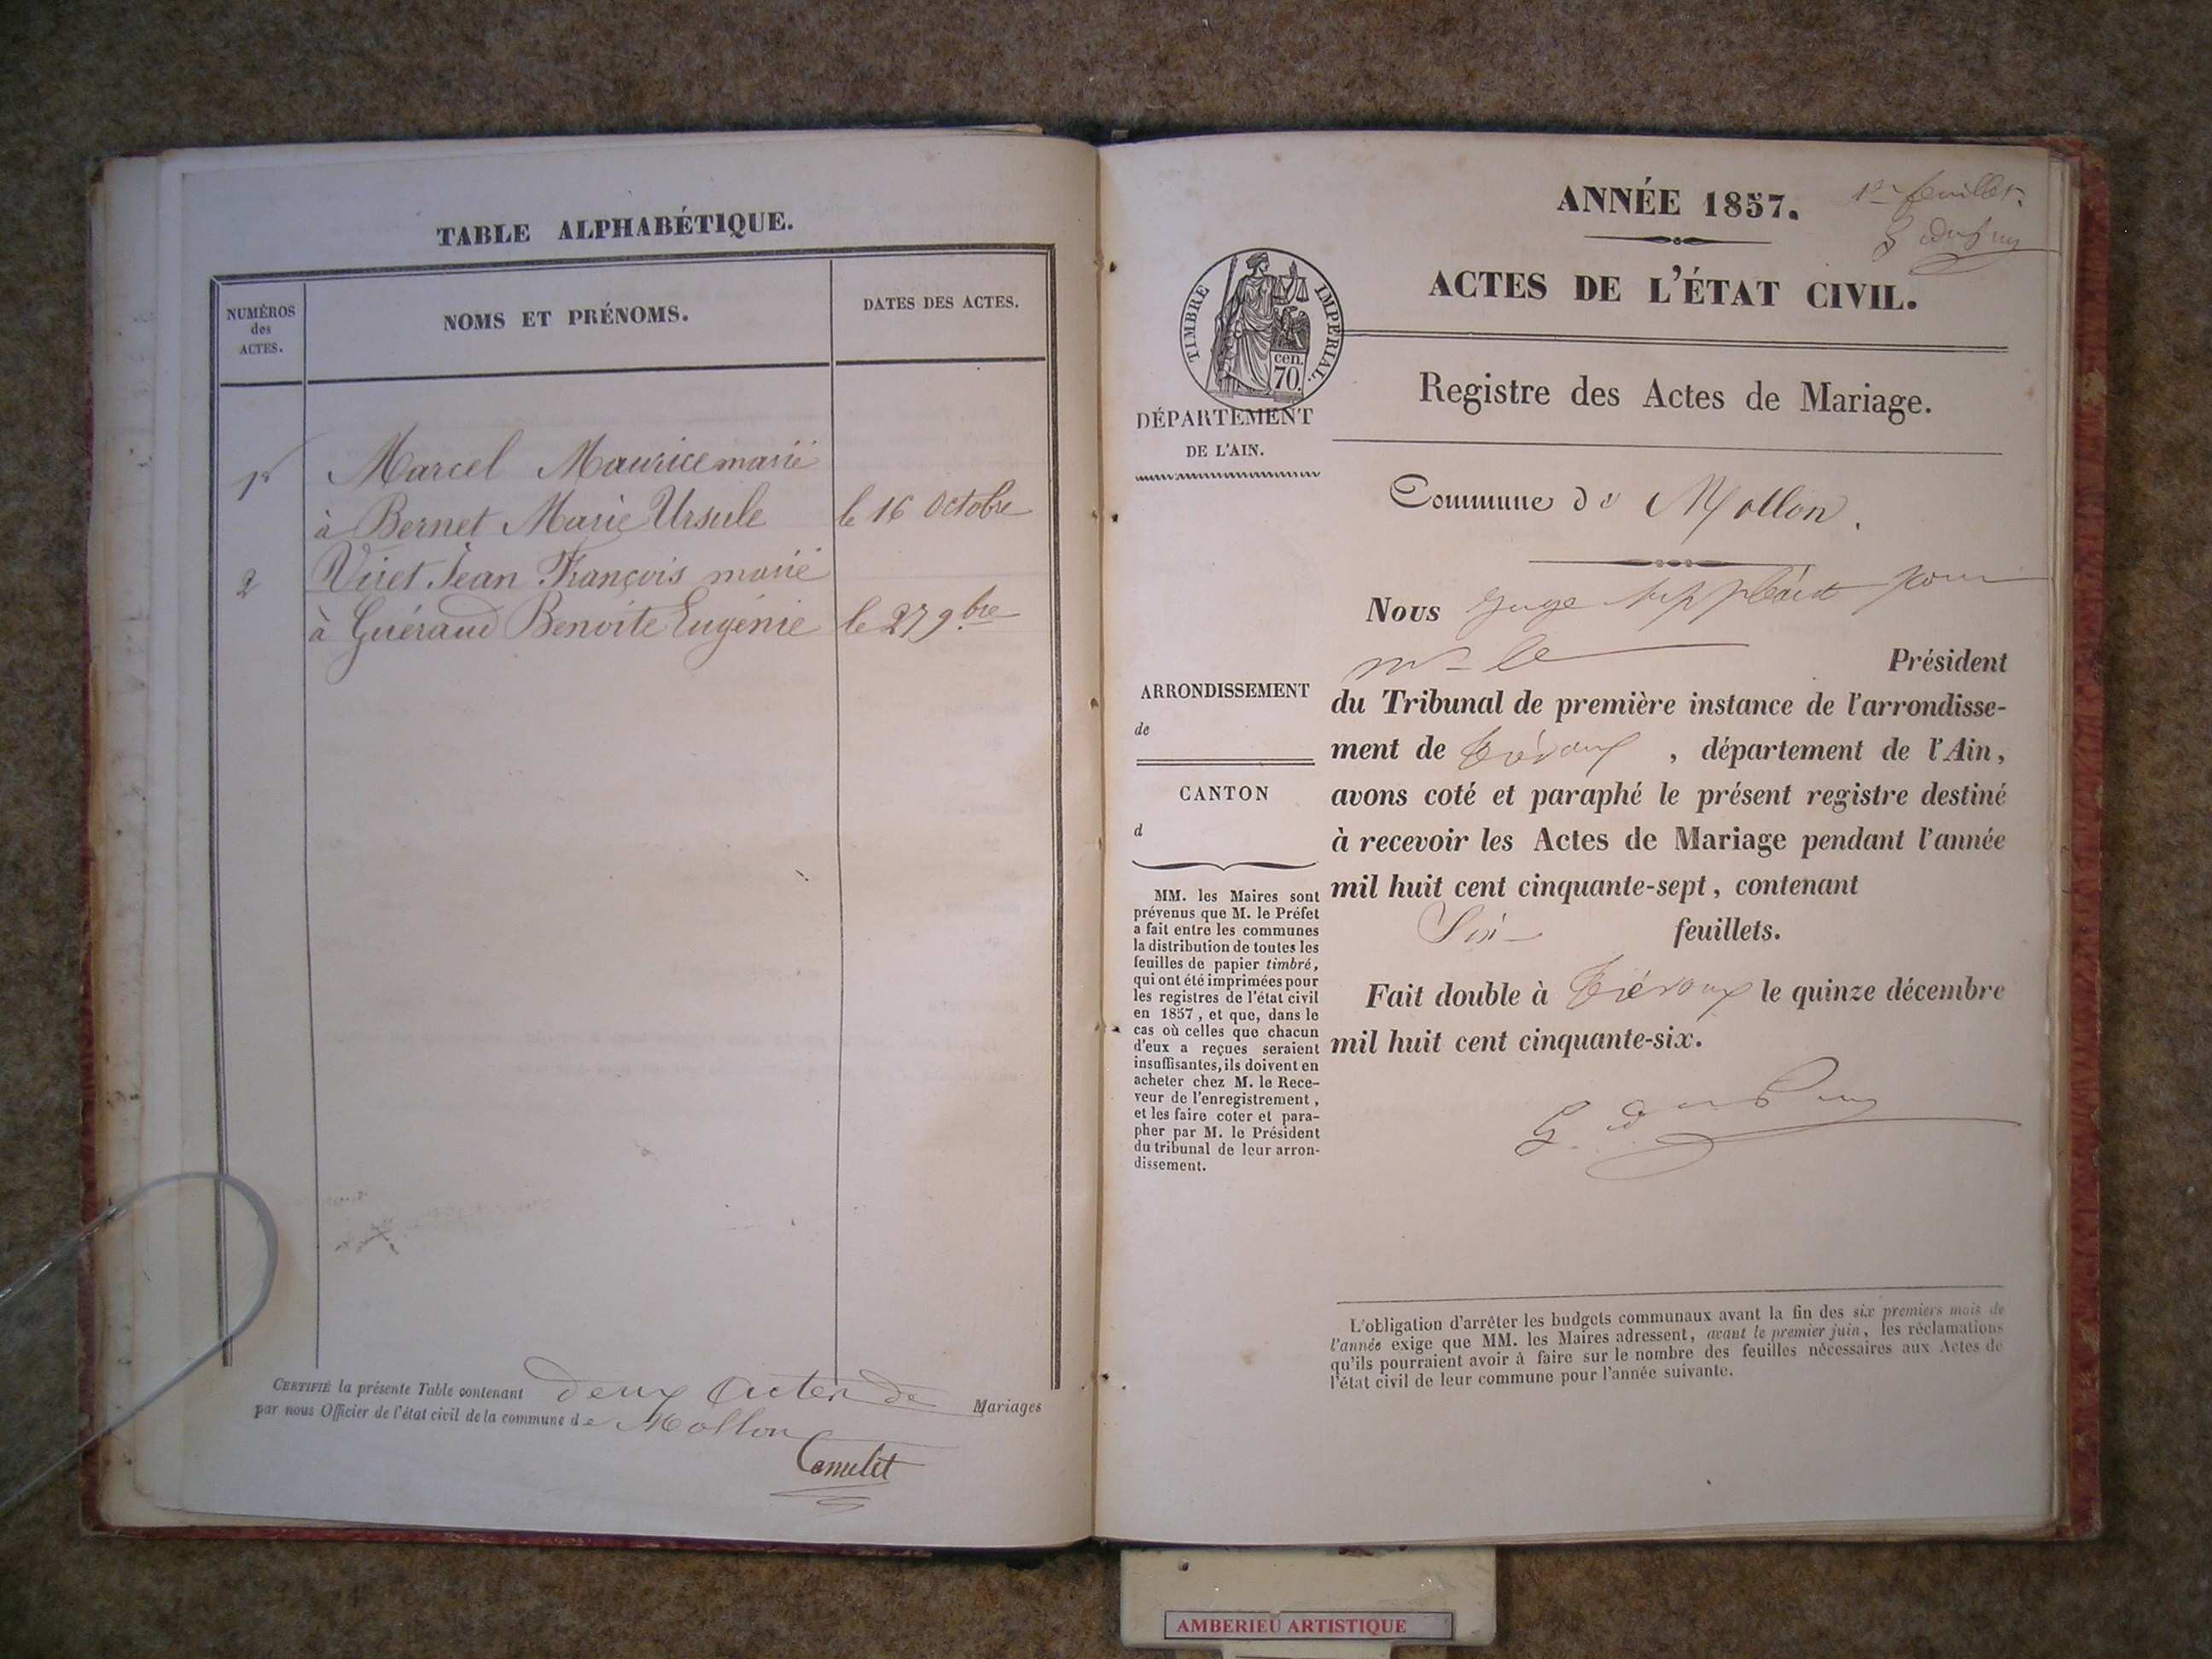 TABLE ALPHABÉTIQUE.
NUMÉROS
des
ACTES.
NOMS ET PRÉNOMS.
DATES DES ACTES.
1r
Marcel Maurice marié
à Bernet Marie Ursule le 16 Octobre
2 Viret Jean François marié
à Guéraud Benoite Eugénie le 27 9bre
CERTIFIÉ la présente Table contenant deux Actes de Mariages
par nous Officier de l'état civil de la commune de Mollon
ANNÉE 1857.
1er feuillet.
ACTES DE L'ÉTAT CIVIL.
TIMBRE IMPÉRIAL.
cen.
70.
DÉPARTEMENT
DE L'AIN.
Registre des Actes de Mariage.
Commune de Mollon.
Nous Juge suppléant pour
mr le Président
du Tribunal de première instance de l'arrondisse-
ment de Trévoux, département de l'Ain,
avons coté et paraphé le présent registre destiné
à recevoir les Actes de Mariage pendant l'année
mil huit cent cinquante-sept, contenant
Six feuillets.
Fait double à Trévoux le quinze décembre
mil huit cent cinquante-six.
ARRONDISSEMENT
de
CANTON
d
MM. les Maires sont
prévenus que M. le Préfet
a fait entre les communes
la distribution de toutes les
feuilles de papier timbré,
qui ont été imprimées pour
les registres de l'état civil
en 1857, et que, dans le
cas où celles que chacun
d'eux a reçues seraient
insuffisantes, ils doivent en
acheter chez M. le Rece-
veur de l'enregistrement,
et les faire coter et para-
pher par M. le Président
du tribunal de leur arron-
dissement.
L'obligation d'arrêter les budgets communaux avant la fin des six premiers mois de
l'année exige que MM. les Maires adressent, avant le premier juin, les réclamations
qu'ils pourraient avoir à faire sur le nombre des feuilles nécessaires aux Actes de
l'état civil de leur commune pour l'année suivante.
AMBERIEU ARTISTIQUE